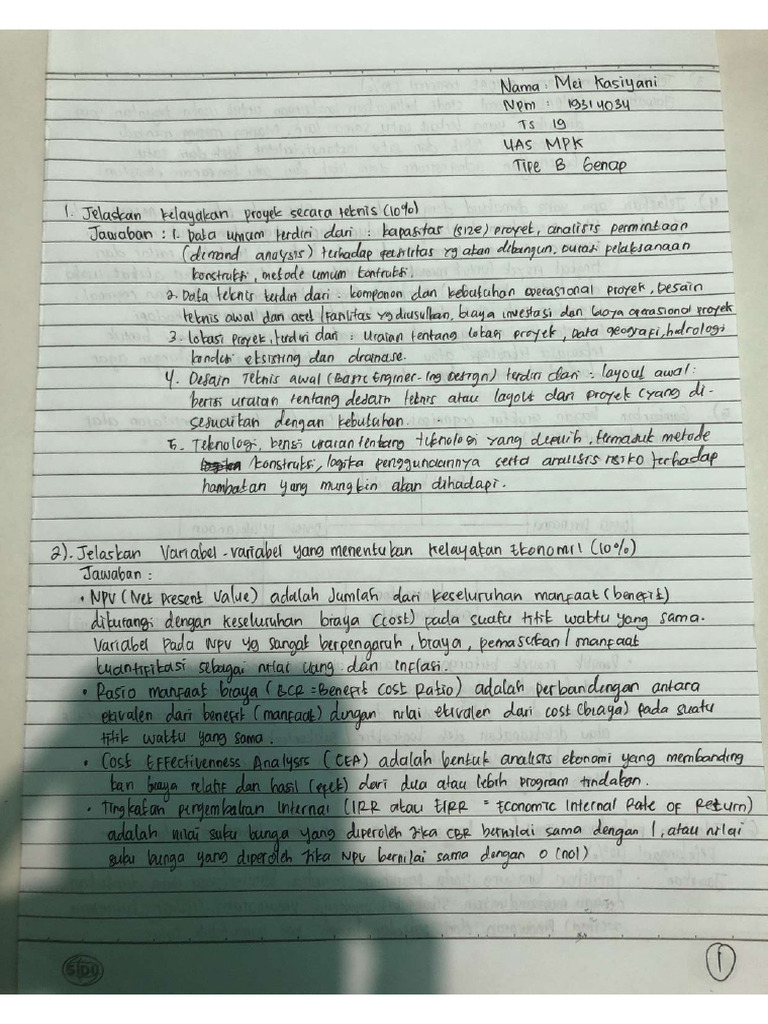 Nama : Mei Kasiyani
Npm : 19314034
TS 19
UAS MPK
Tipe B Genap
1. Jelaskan kelayakan proyek secara teknis (10%)
Jawaban : 1. Data umum terdiri dari : kapasitas (size) proyek, analisis permintaan
(demand analysis) terhadap fasilitas yg akan dibangun, durasi pelaksanaan
konstruksi, metode umum kontruksi.
2. Data teknis terdiri dari : komponen dan kebutuhan operasional proyek, Desain
teknis awal dan aset / fasilitas yg diusulkan, biaya investasi dan biaya operasional proyek
3. Lokasi proyek, terdiri dari : uraian tentang lokasi proyek, Data geografi, hidrologi
kondisi eksisting dan drainase.
4. Desain Teknis awal (Basic Enginer-ing Design) terdiri dari : layout awal :
berisi uraian tentang desain teknis atau layout dari proyek (yang di-
sesuaikan dengan kebutuhan.
5. Teknologi, berisi uraian tentang teknologi yang dipilih, termasuk metode
/konstruksi, logika penggunaannya serta analisis risiko terhadap
hambatan yang mungkin akan dihadapi.
2). Jelaskan Variabel-variabel yang menentukan kelayakan Ekonomi! (10%)
Jawaban :
• NPV (Net Present Value) adalah Jumlah dari keseluruhan manfaat (benefit)
dikurangi dengan keseluruhan biaya (cost) pada suatu titik waktu yang sama.
Variabel pada NPV yg sangat berpengaruh, biaya, pemasukan / manfaat
kuantifikasi sebagai nilai uang dan inflasi.
• Rasio manfaat biaya (BCR = Benefit Cost Ratio) adalah perbandingan antara
ekivalen dari benefit (manfaat) dengan nilai ekivalen dari cost (biaya) pada suatu
titik waktu yang sama.
• Cost Effectivenness Analysis (CEA) adalah bentuk analisis ekonomi yang membanding
kan biaya relatif dan hasil (efek) dari dua atau lebih program tindakan.
• Tingkatan pengembalian Internal (IRR atau EIRR = Economic Internal Rate of Return)
adalah nilai suku bunga yang diperoleh Jika CBR bernilai sama dengan 1, atau nilai
suku bunga yang diperoleh Jika NPV bernilai sama dengan 0 (nol)
SIDU
1